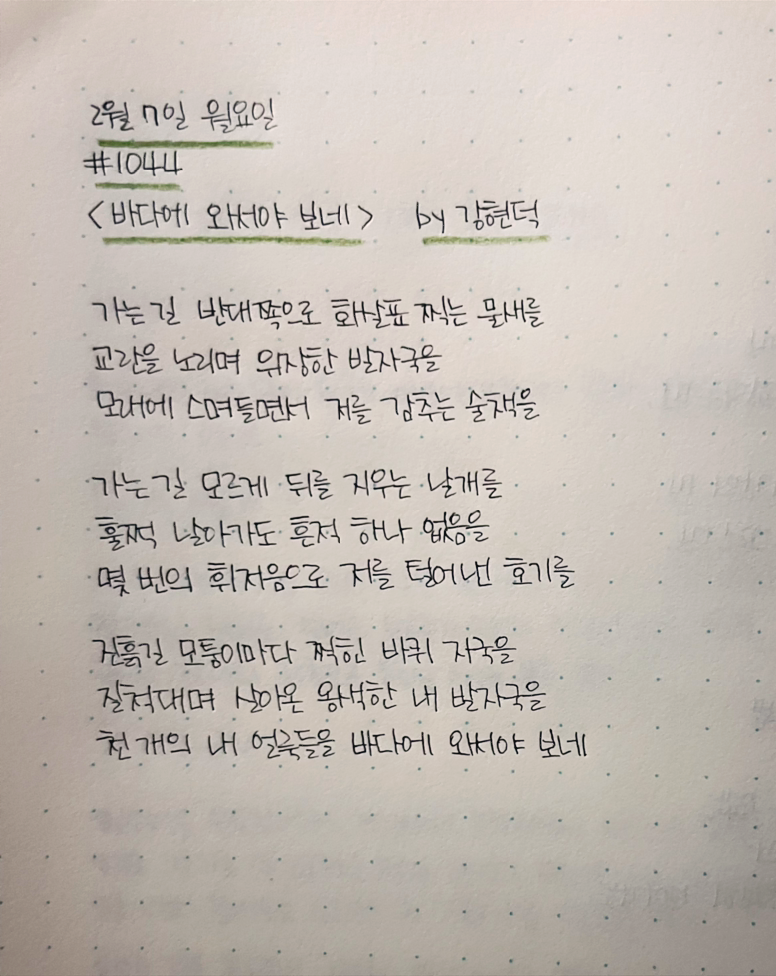 2월 7일 월요일
#1044
<바다에 와서야 보네> by 강현덕
가는 길 반대쪽으로 화살표 찍는 물새를
교란을 노리며 위장한 발자국을
모래에 스며들면서 저를 감추는 술책을
가는 길 모르게 뒤를 지우는 날개를
훌쩍 날아가도 흔적 하나 없음을
몇 번의 휘저음으로 저를 털어낸 호기를
진흙길 모퉁이마다 찍힌 바퀴 자국을
질척대며 살아온 옹색한 내 발자국을
천 개의 내 얼룩들을 바다에 와서야 보네